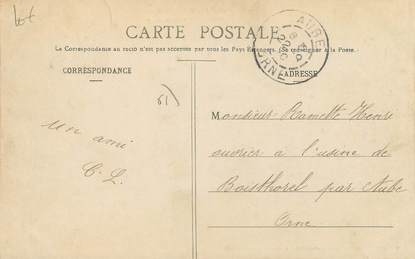 lot
CARTE POSTALE
La Correspondance au recto n'est pas acceptée par tous les Pays Etrangers. (Se renseigner à la Poste.)
CORRESPONDANCE
ADRESSE
AUBE
ORNE
61
un ami
C. L.
Monsieur Ramette Henri
ouvrier à l'usine de
Boisthorel par Aube
Orne